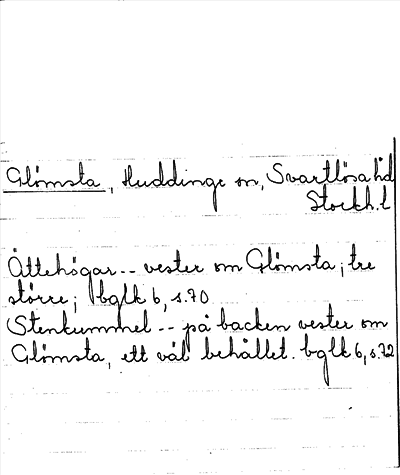 Glömsta, Huddinge sn, Svartlösa hd
Stockh. l
Ättehögar -- vester om Glömsta; tre
större; bglk 6, s.70
Stenkummel -- på backen vester om
Glömsta, ett väl behållet. bglk 6, s.72